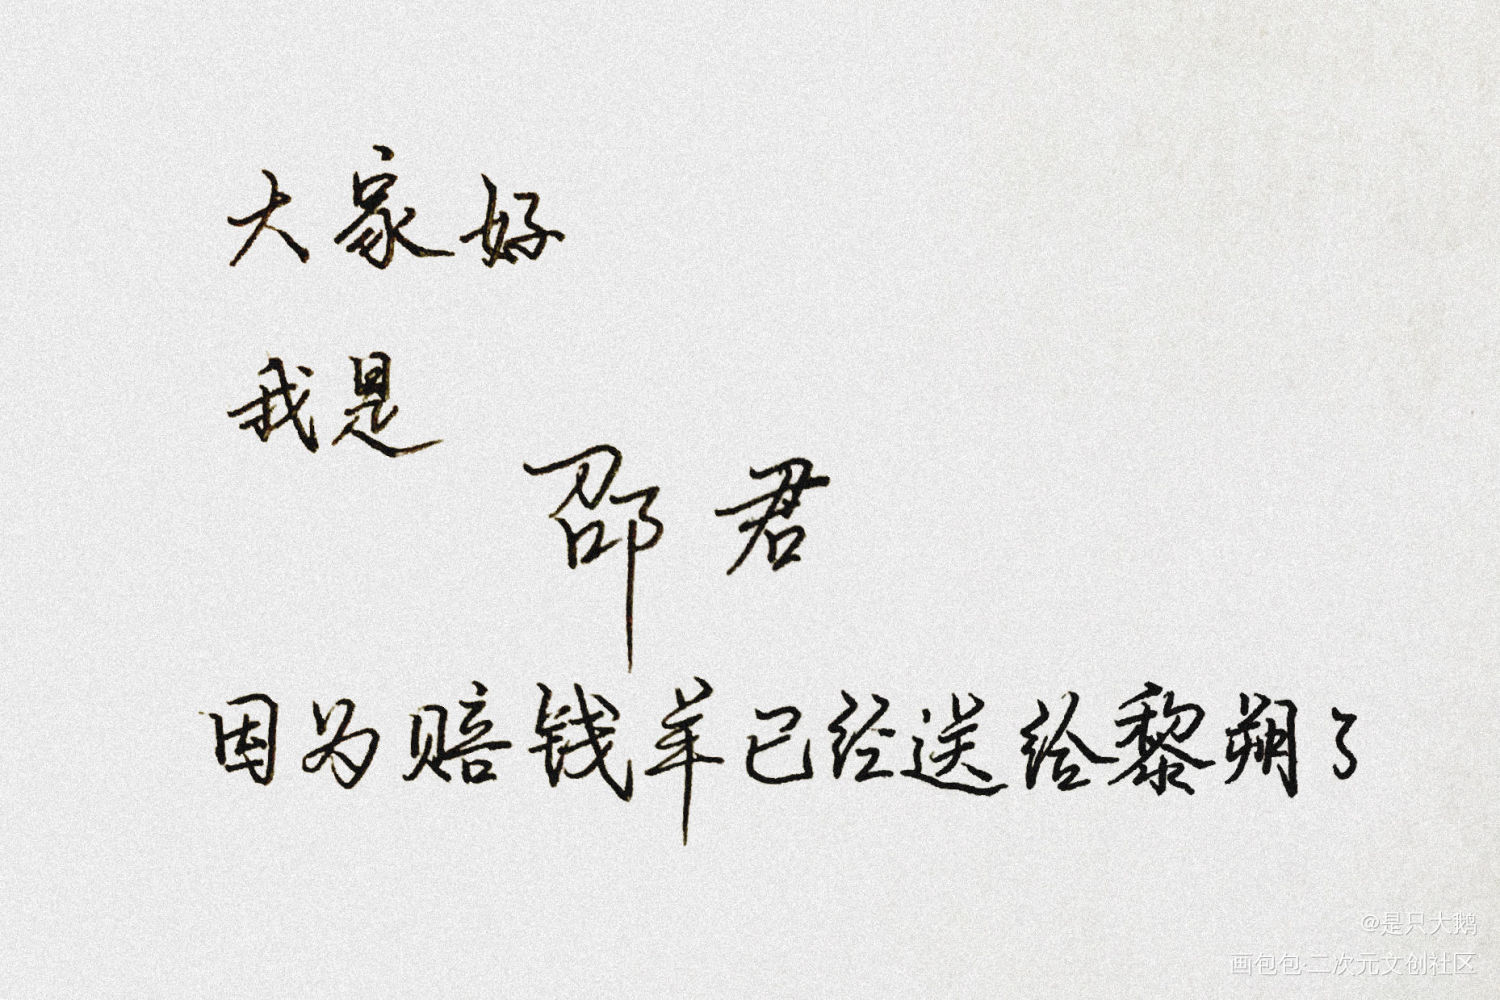 大家好
我是
邵君
因为赔钱羊已经送给黎朔了
@是只大鹅
画包包·二次元文创社区